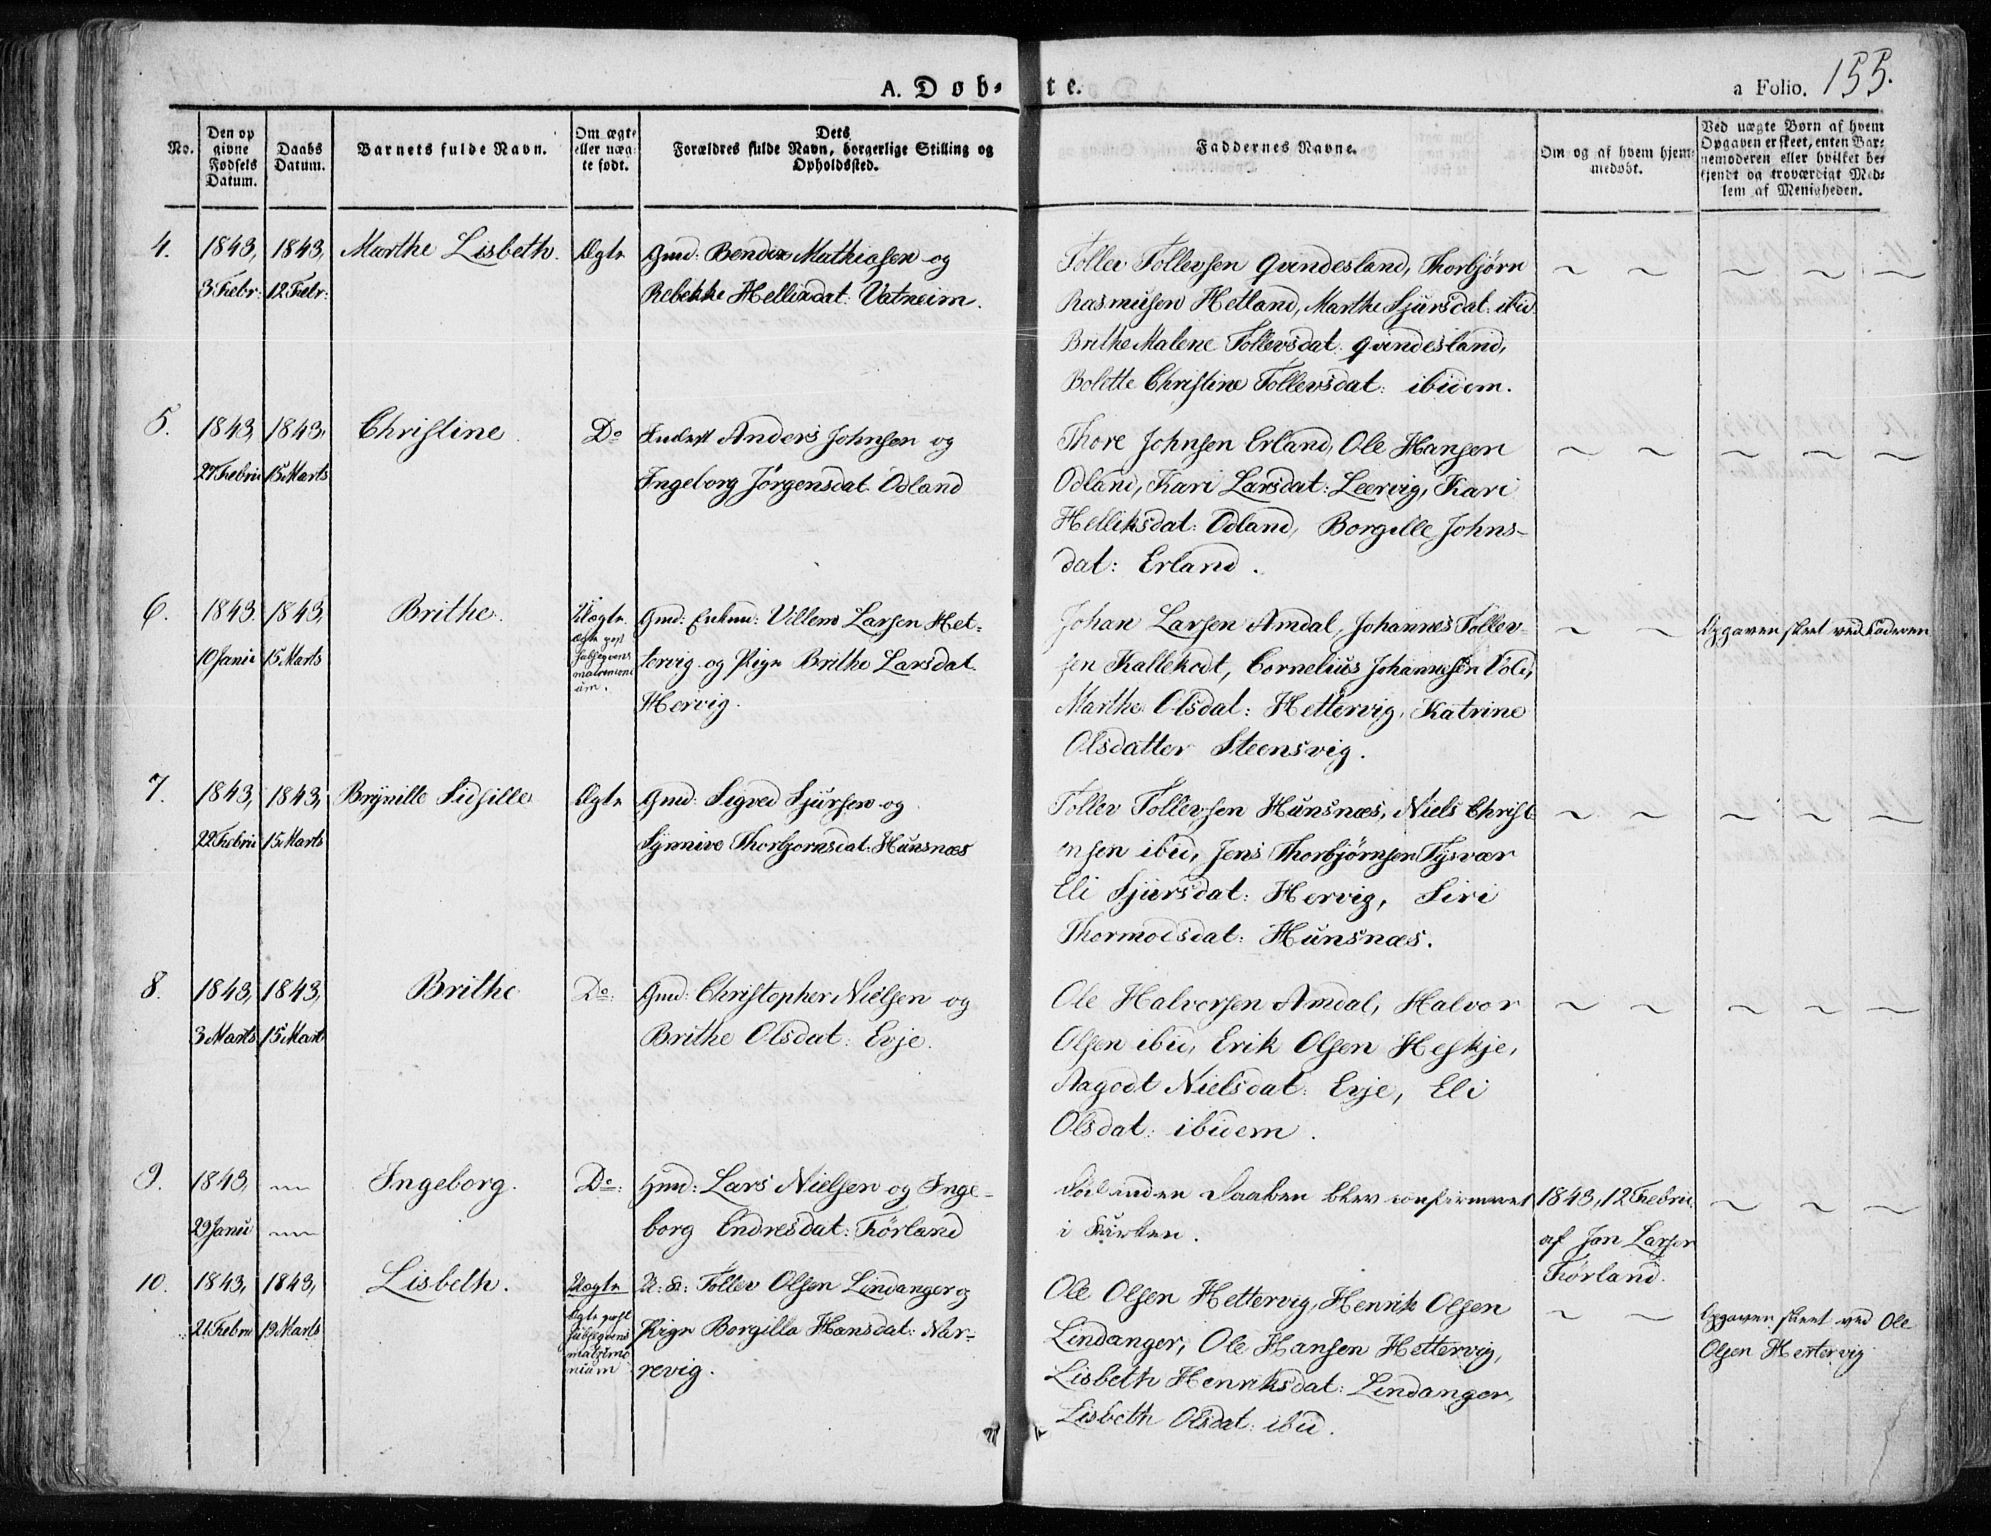 A. Døb-te.
a Folio. 155.
No.
Den op
givne
Fødsels
Datum.
Daabs
Datum.
Barnets fulde Navn.
Om ægte
eller uæg-
te født.
Dets
Forældres fulde Navn, borgerlige Stilling og
Opholdssted.
Faddernes Navne.
Om og af hvem hjem-
medøbt.
Ved uægte Børn af hvem
Opgaven er skeet, enten Bar-
nemoderen eller hvilket be-
kjendt og troværdigt Med-
lem af Menigheden.
4.
1843,
3 Febr:
1843,
12 Febr:
Marthe Lisbeth.
Ægte
Gmd: Bendix Mathiasen og
Rebekke Helliksdat: Vatneim.
Tollev Tollevsen Qvindesland, Thorbjørn
Rasmusen Hetland, Marthe Sjursdat: ibid
Brithe Malene Tollevsdat: Qvindesland,
Bolette Christine Tollevsdat: ibidem.
5.
1843,
27 Febru
1843,
15 Marts
Christine
Do
Inderst Anders Johnsen og
Ingeborg Jørgensdat. Odland
Thore Johnsen Erland, Ole Hansen
Odland, Kari Larsdat: Leervig, Kari
Helliksdat: Odland, Borgille Johns-
dat: Erland.
6.
1843.
10 Janu
1843,
15 Marts
Brithe.
Uægte.
Ægte post
subseqvens
matrimoni
um.
Gmd: Enkm: Villem Larsen Het-
tervig og Pige Brithe Larsdat.
Hervig.
Johan Larsen Amdal, Johannes Tollev-
sen Kallekodt, Cornelius Johannesen Vold,
Marthe Olsdat: Hettervig, Katrine
Olsdatter Steensvig.
Opgaven skeet ved Faderen
7.
1843,
22 Febru
1843,
15 Marts
Brynille Sidsille
Ægte
Gmd: Sigved Sjursen og
Synnive Thorbjornsdat: Hunsnæs
Tollev Tollevsen Hunsnæs, Niels Christ
ensen ibid, Jens Thorbjørnsen Tysvær
Eli Sjursdat: Hervig, Siri
Thormodsdat: Hunsnæs.
8.
1843,
3 Marts
1843,
15 Marts
Brithe
Do:
Gmd: Christopher Nielsen og
Brithe Olsdat: Evje.
Ole Halvorsen Amdal, Halvor
Olsen ibid, Erik Olsen Heskje,
Aagodt Nielsdat: Evje, Eli
Olsdat: ibidem.
9.
1843,
29 Janu
Ingeborg.
Do:
Hmd: Lars Nielsen og Inge-
borg Endresdat: Førland
Død inden Daaben blev confirmeret
i Kirken.
1843, 12 Febru
af Jan Larsen
Førland.
10.
1843,
21 Febru
1843,
19 Marts
Lisbeth.
Uægte
Ægte post
subseqvens
matrimo
nium
U: K: Tollev Olsen Lindanger og
Pige Borgilla Hansdat: Nar-
revig.
Ole Olsen Hettervig, Henrik Olsen
Lindanger, Ole Hansen Hettervig,
Lisbeth Henriksdat: Lindanger,
Lisbeth Olsdat: ibid.
Opgaven skeet ved Ole
Olsen Hettervig